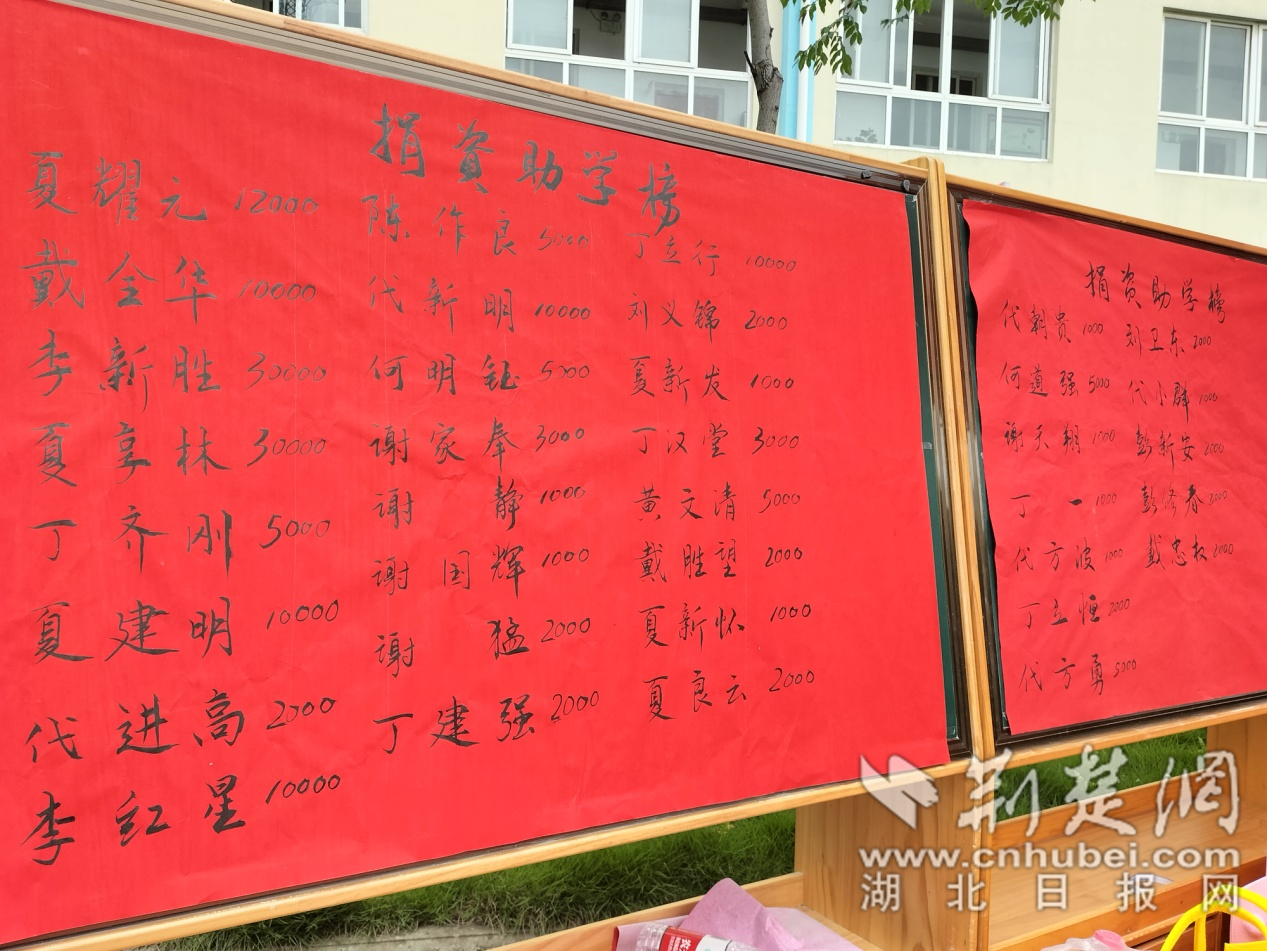 捐资助学榜
夏耀元 12000
戴全华 10000
李新胜 30000
夏享林 30000
丁齐刚 5000
夏建明 10000
代进高 2000
李红星 10000
陈作良 5000
代新明 10000
何明钰 5000
谢家奉 3000
谢静 1000
谢国辉 1000
谢猛 2000
丁建强 2000
丁立行 10000
刘义锦 2000
夏新发 1000
丁汉堂 3000
黄文清 5000
戴胜望 2000
夏新怀 1000
夏良云 2000
捐资助学榜
代朝贵 1000
何道强 5000
谢天翔 1000
丁一 1000
代方波 1000
丁立恒 2000
代方勇 5000
刘卫东 2000
代小群 1000
彭新安 2000
彭修春 2000
戴忠权 2000
荆楚網
www.cnhubei.com
湖北日报网